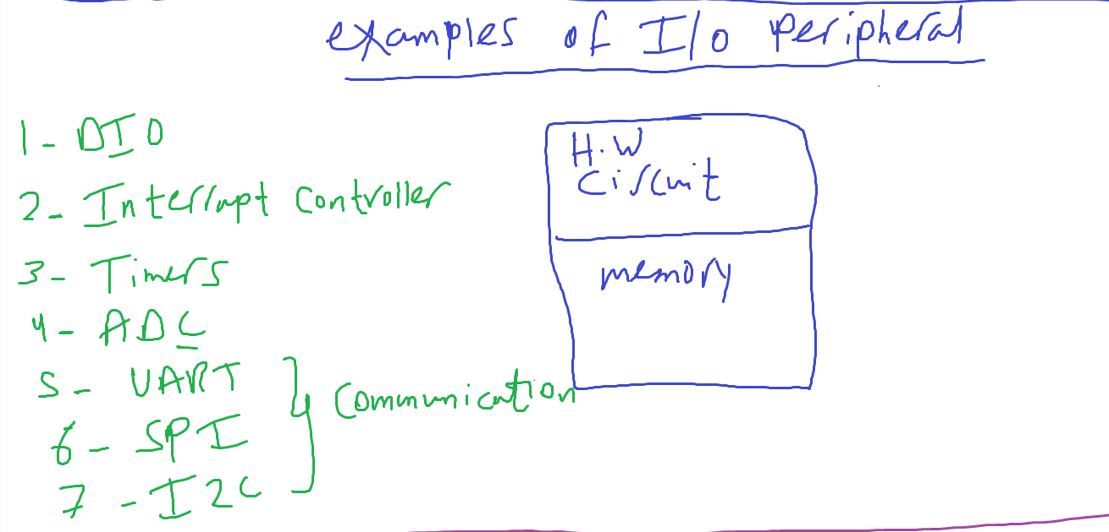 examples of I/o peripheral
1- DIO
2- Interrupt controller
3- Timers
4- ADC
5- UART
6- SPI
7- I2C
communication
H.W
circuit
memory